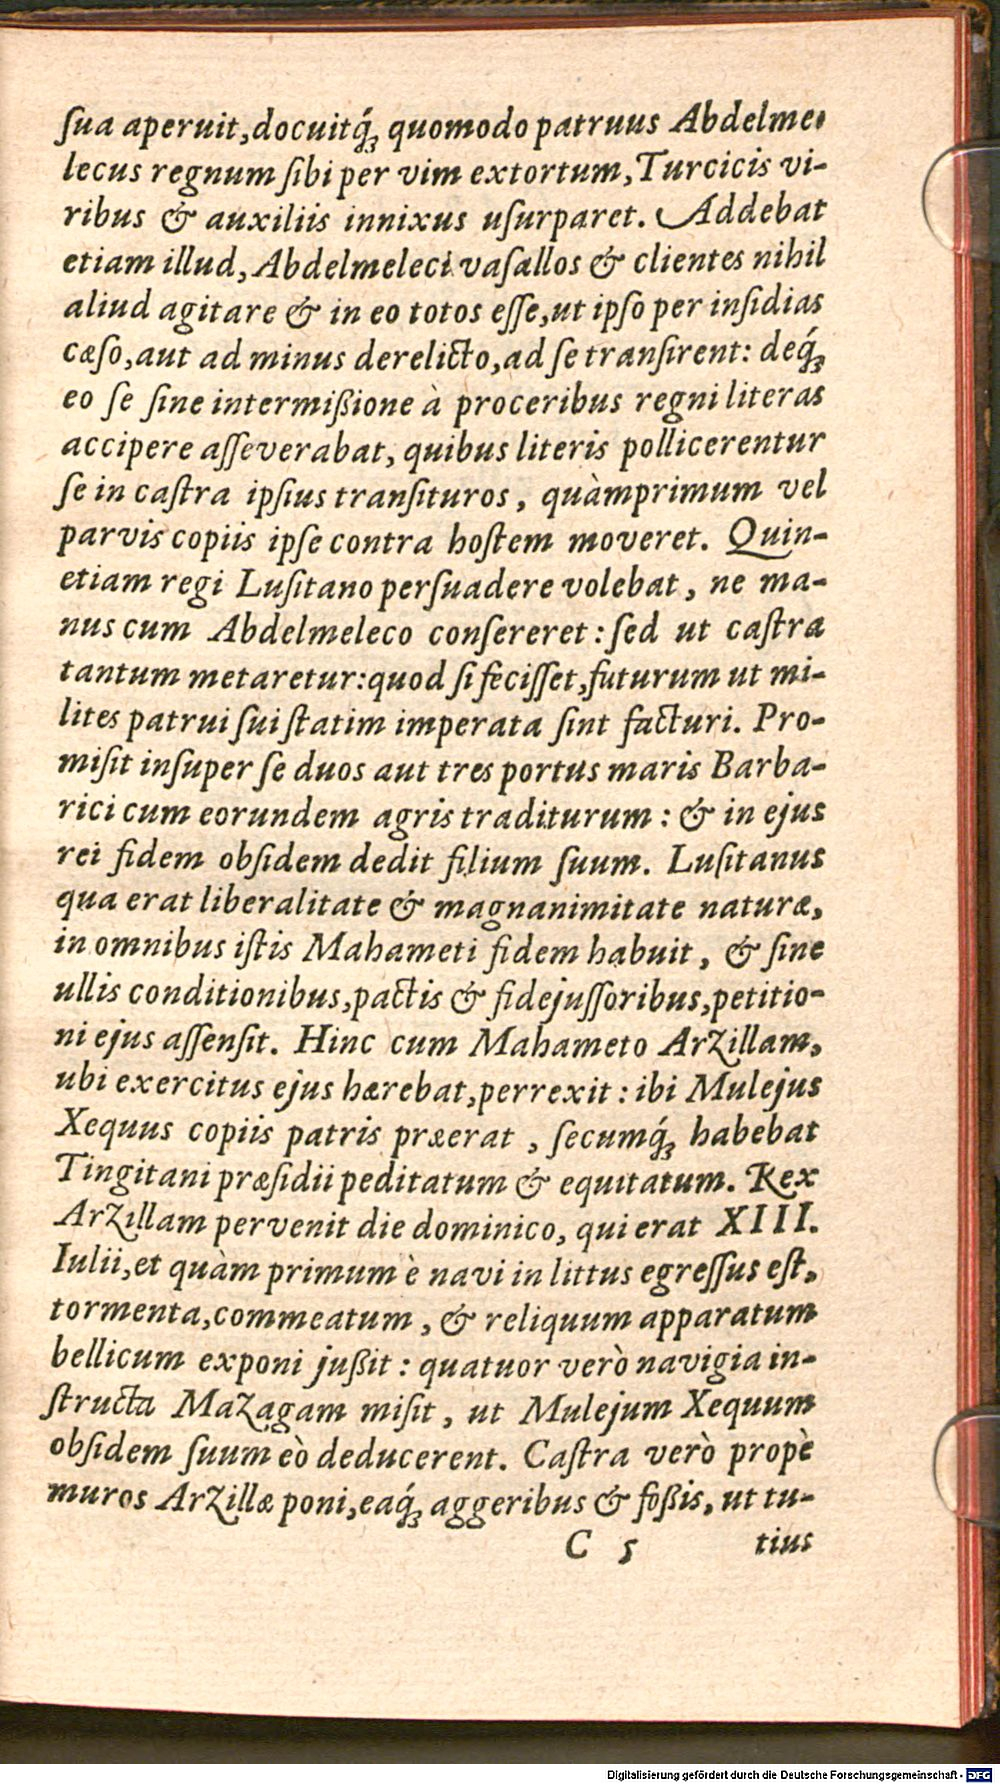 ſua aperuit, docuitq́ꝫ quomodo patruus Abdelme-
lecus regnum ſibi per vim extortum, Turcicis vi-
ribus & auxiliis innixus uſurparet. Addebat
etiam illud, Abdelmeleci vaſallos & clientes nihil
aliud agitare & in eo totos eſſe, ut ipſo per inſidias
cæſo, aut ad minus derelicto, ad ſe tranſirent: deq́ꝫ
eo ſe ſine intermißione à proceribus regni literas
accipere aſſeverabat, quibus literis pollicerentur
ſe in caſtra ipſius tranſituros, quàmprimum vel
parvis copiis ipſe contra hoſtem moveret. Quin-
etiam regi Luſitano perſuadere volebat, ne ma-
nus cum Abdelmeleco conſereret: ſed ut caſtra
tantum metaretur: quod ſi feciſſet, futurum ut mi-
lites patrui ſui ſtatim imperata ſint facturi. Pro-
miſit inſuper ſe duos aut tres portus maris Barba-
rici cum eorundem agris traditurum: & in ejus
rei fidem obſidem dedit filium ſuum. Luſitanus
qua erat liberalitate & magnanimitate naturæ,
in omnibus iſtis Mahameti fidem habuit, & ſine
ullis conditionibus, pactis & fidejuſſoribus, petitio-
ni ejus aſſenſit. Hinc cum Mahameto Arzillam,
ubi exercitus ejus hærebat, perrexit: ibi Mulejus
Xequus copiis patris præerat, ſecumq́ꝫ habebat
Tingitani præſidii peditatum & equitatum. Rex
Arzillam pervenit die dominico, qui erat XIII.
Iulii, et quàm primum è navi in littus egreſſus eſt,
tormenta, commeatum, & reliquum apparatum
bellicum exponi jußit: quatuor verò navigia in-
ſtructa Mazagam miſit, ut Mulejum Xequum
obſidem ſuum eò deducerent. Caſtra verò propè
muros Arzillæ poni, eaq́ꝫ aggeribus & foßis, ut tu-
C 5 tius
Digitalisierung gefördert durch die Deutsche Forschungsgemeinschaft - DFG